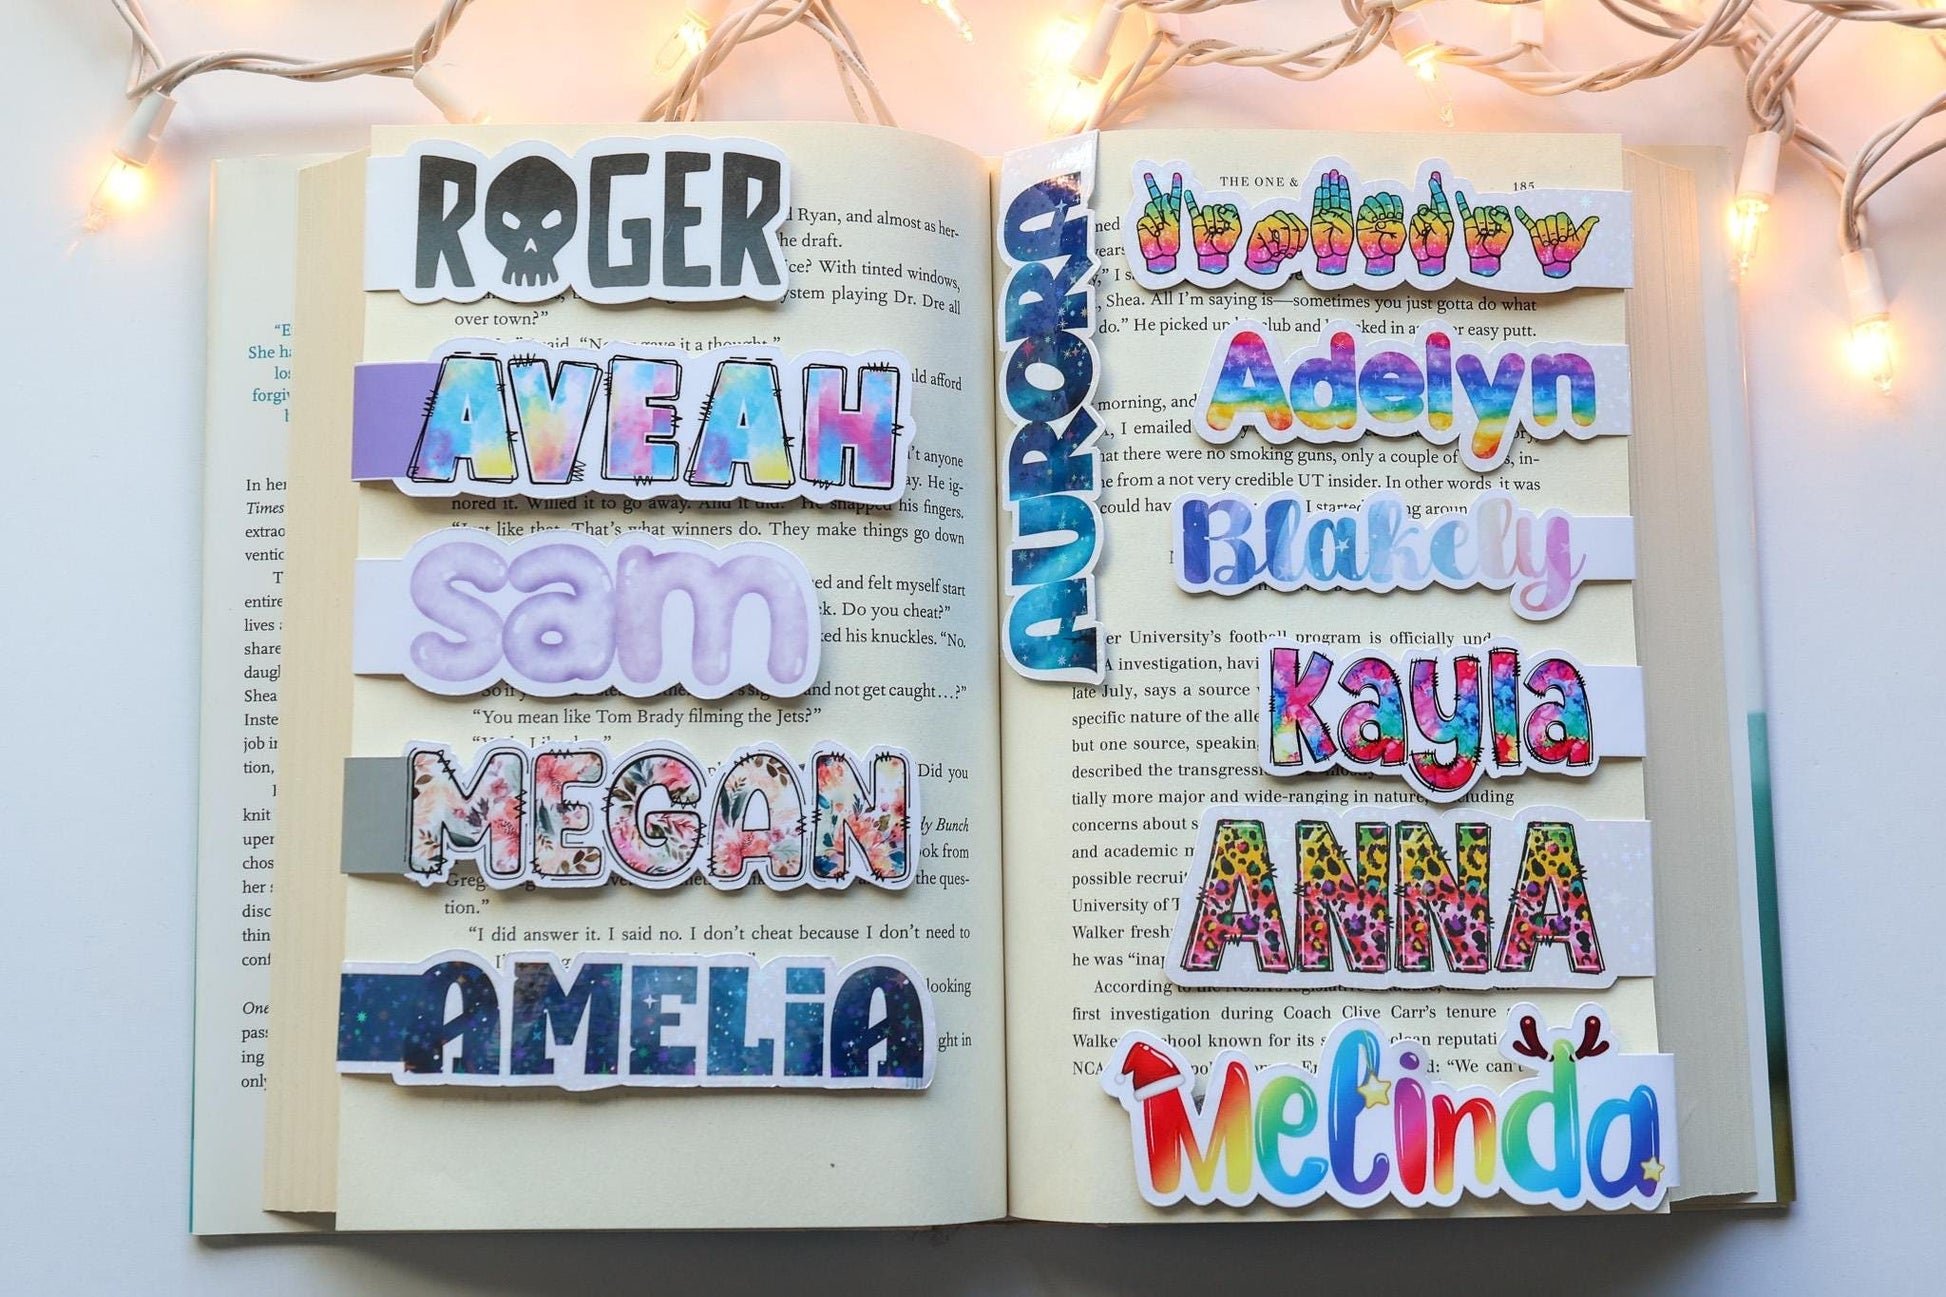 ROGER
Ryan, and almost as her-
he draft.
ice? With tinted windows,
ystem playing Dr. Dre all
over town?”
gave it a thought.”
AVEAH
ld afford
’t anyone
ay. He ig-
nored it. Willed it to go away. And it did.” He snapped his fingers.
“Just like that. That’s what winners do. They make things go down
sam
ed and felt myself start
ck. Do you cheat?”
ked his knuckles. “No.
and not get caught…?”
“You mean like Tom Brady filming the Jets?”
MEGAN
Did you
dy Bunch
ok from
Greg
the ques-
tion.”
“I did answer it. I said no. I don’t cheat because I don’t need to
AMELiA
looking
ght in
“E
She ha
los
forgiv
b
In her
Times
extrao
ventic
T
entire
lives
share
daugl
Shea
Inste
job ir
tion,
knit
uper
chos
her
disc
thin
conf
One
pass
ing
only
AURORA
THE ONE &
185
ned
years
,” I s
, Shea. All I’m saying is—sometimes you just gotta do what
do.” He picked up club and easy putt.
Adelyn
morning, and
, I emailed
hat there were no smoking guns, only a couple of s, in-
e from a not very credible UT insider. In other words, it was
could hav I started ng aroun
Blakely
er University’s football program is officially und
A investigation, havi
late July, says a source
specific nature of the alle
but one source, speakin
described the transgressi
tially more major and wide-ranging in nature, including
kayla
concerns about s
and academic m
possible recruit
University of T
Walker freshm
he was “inap
ANNA
According to the NCAA’s legislative
first investigation during Coach Clive Carr’s tenure
Walke school known for its clean reputati
NCA
d: “We can’t
Melinda